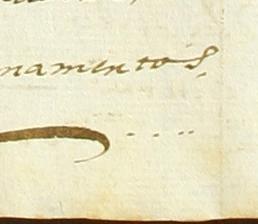 namentos,
....